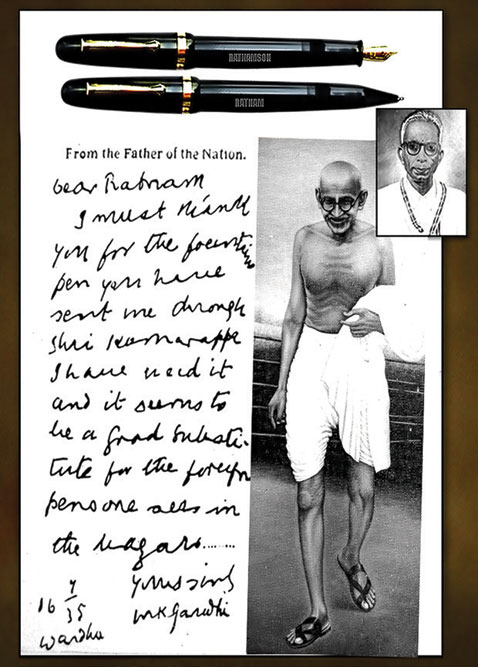 RATNAMSON
RATNAM
From the Father of the Nation.
Dear Ratnam
I must thank
you for the fountain
pen you have
sent me through
Shri Kumarappa
I have used it
and it seems to
be a good substi-
tute for the foreign
pens one sees in
the bazars........
16 7/35 Yours
Wardha MKGandhi